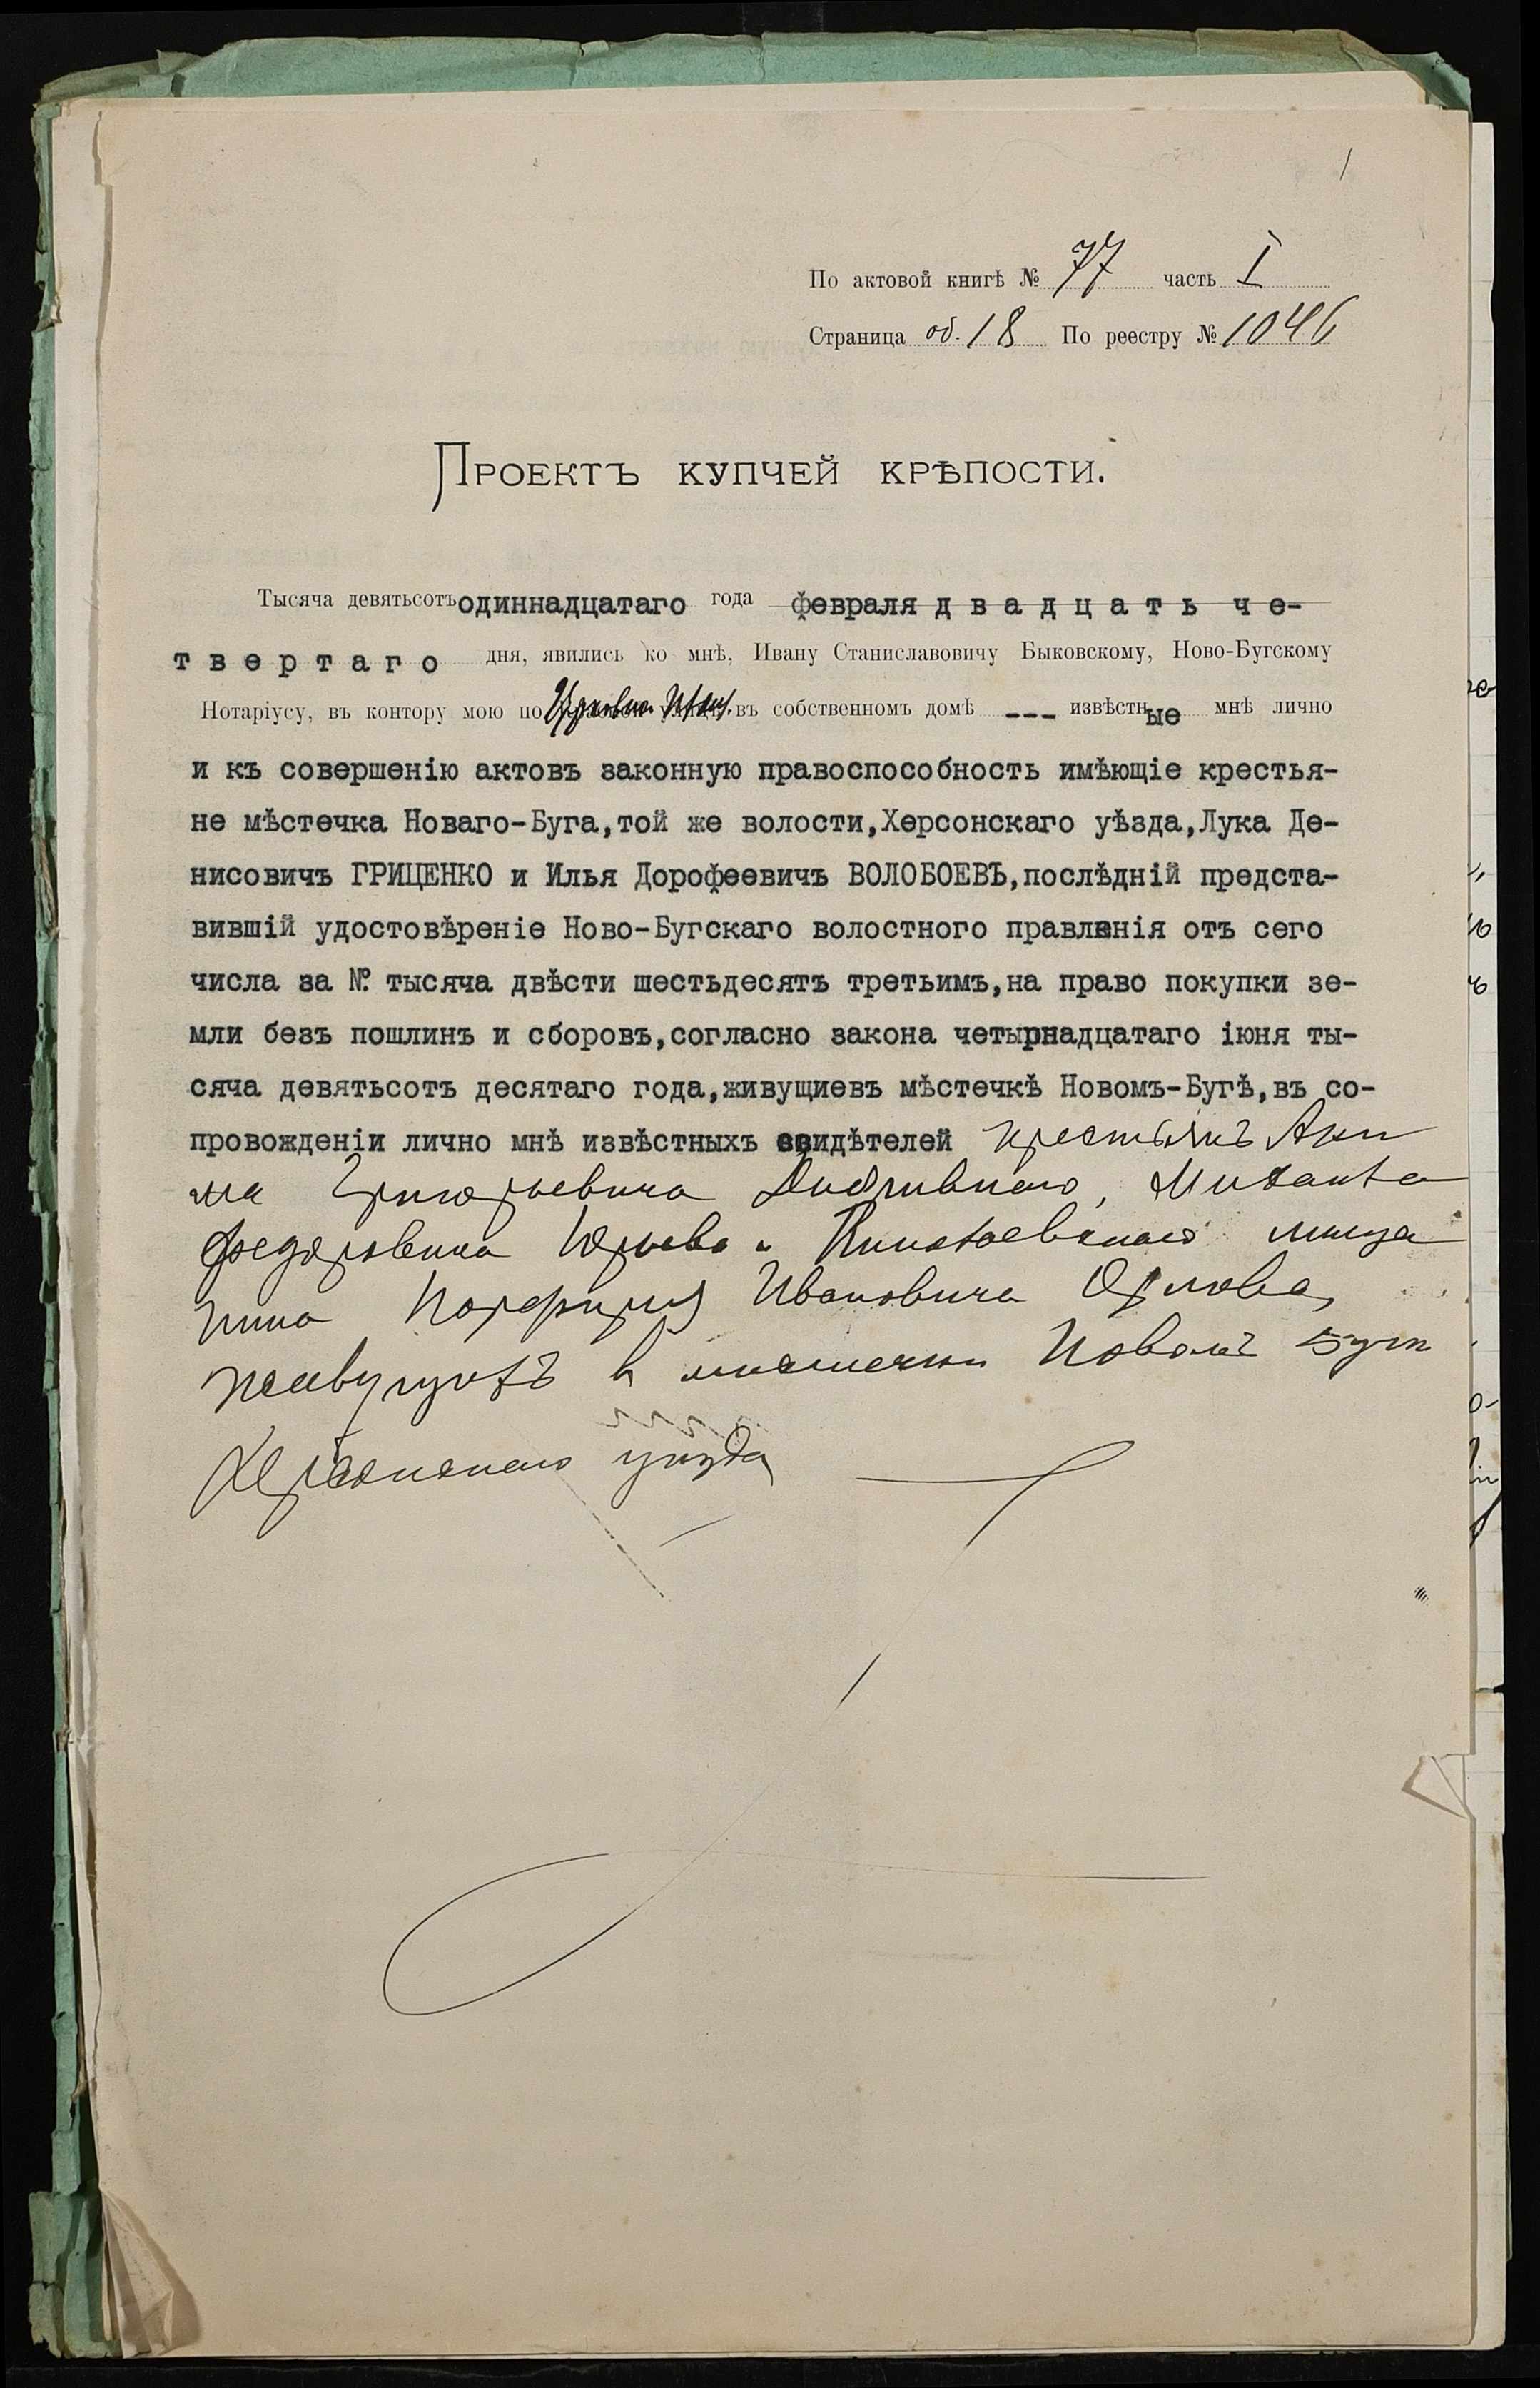 1
По актовой книгѣ № 77 часть I
Страница об. 18 По реестру № 1046
Проектъ купчей крѣпости.
Тысяча девятьсотъ одиннадцатаго года февраля двадцать че-
твертаго дня, явились ко мнѣ, Ивану Станиславовичу Быковскому, Ново-Бугскому
Нотаріусу, въ контору мою по въ собственномъ домѣ --- извѣстные мнѣ лично
и къ совершенію актовъ законную правоспособность имѣющіе крестья-
не мѣстечка Новаго-Буга,той же волости,Херсонскаго уѣзда,Лука Де-
нисовичъ ГРИЦЕНКО и Илья Дорофеевичъ ВОЛОБОЕВЪ,послѣдній предста-
вившій удостовѣреніе Ново-Бугскаго волостного правленія отъ сего
числа за №. тысяча двѣсти шестьдесятъ третьимъ,на право покупки зе-
мли безъ пошлинъ и сборовъ,согласно закона четырнадцатаго іюня ты-
сяча девятьсотъ десятаго года,живущиевъ мѣстечкѣ Новомъ-Бугѣ,въ со-
провожденіи лично мнѣ извѣстныхъ свидѣтелей крестьянъ Аки
ма Григорьевича Михаила
Федоровича Юрьева и мѣща
нина Порфирія Ивановича Орлова,
живущихъ в мѣстечкѣ Новомъ Бугѣ
Херсонскаго уѣзда